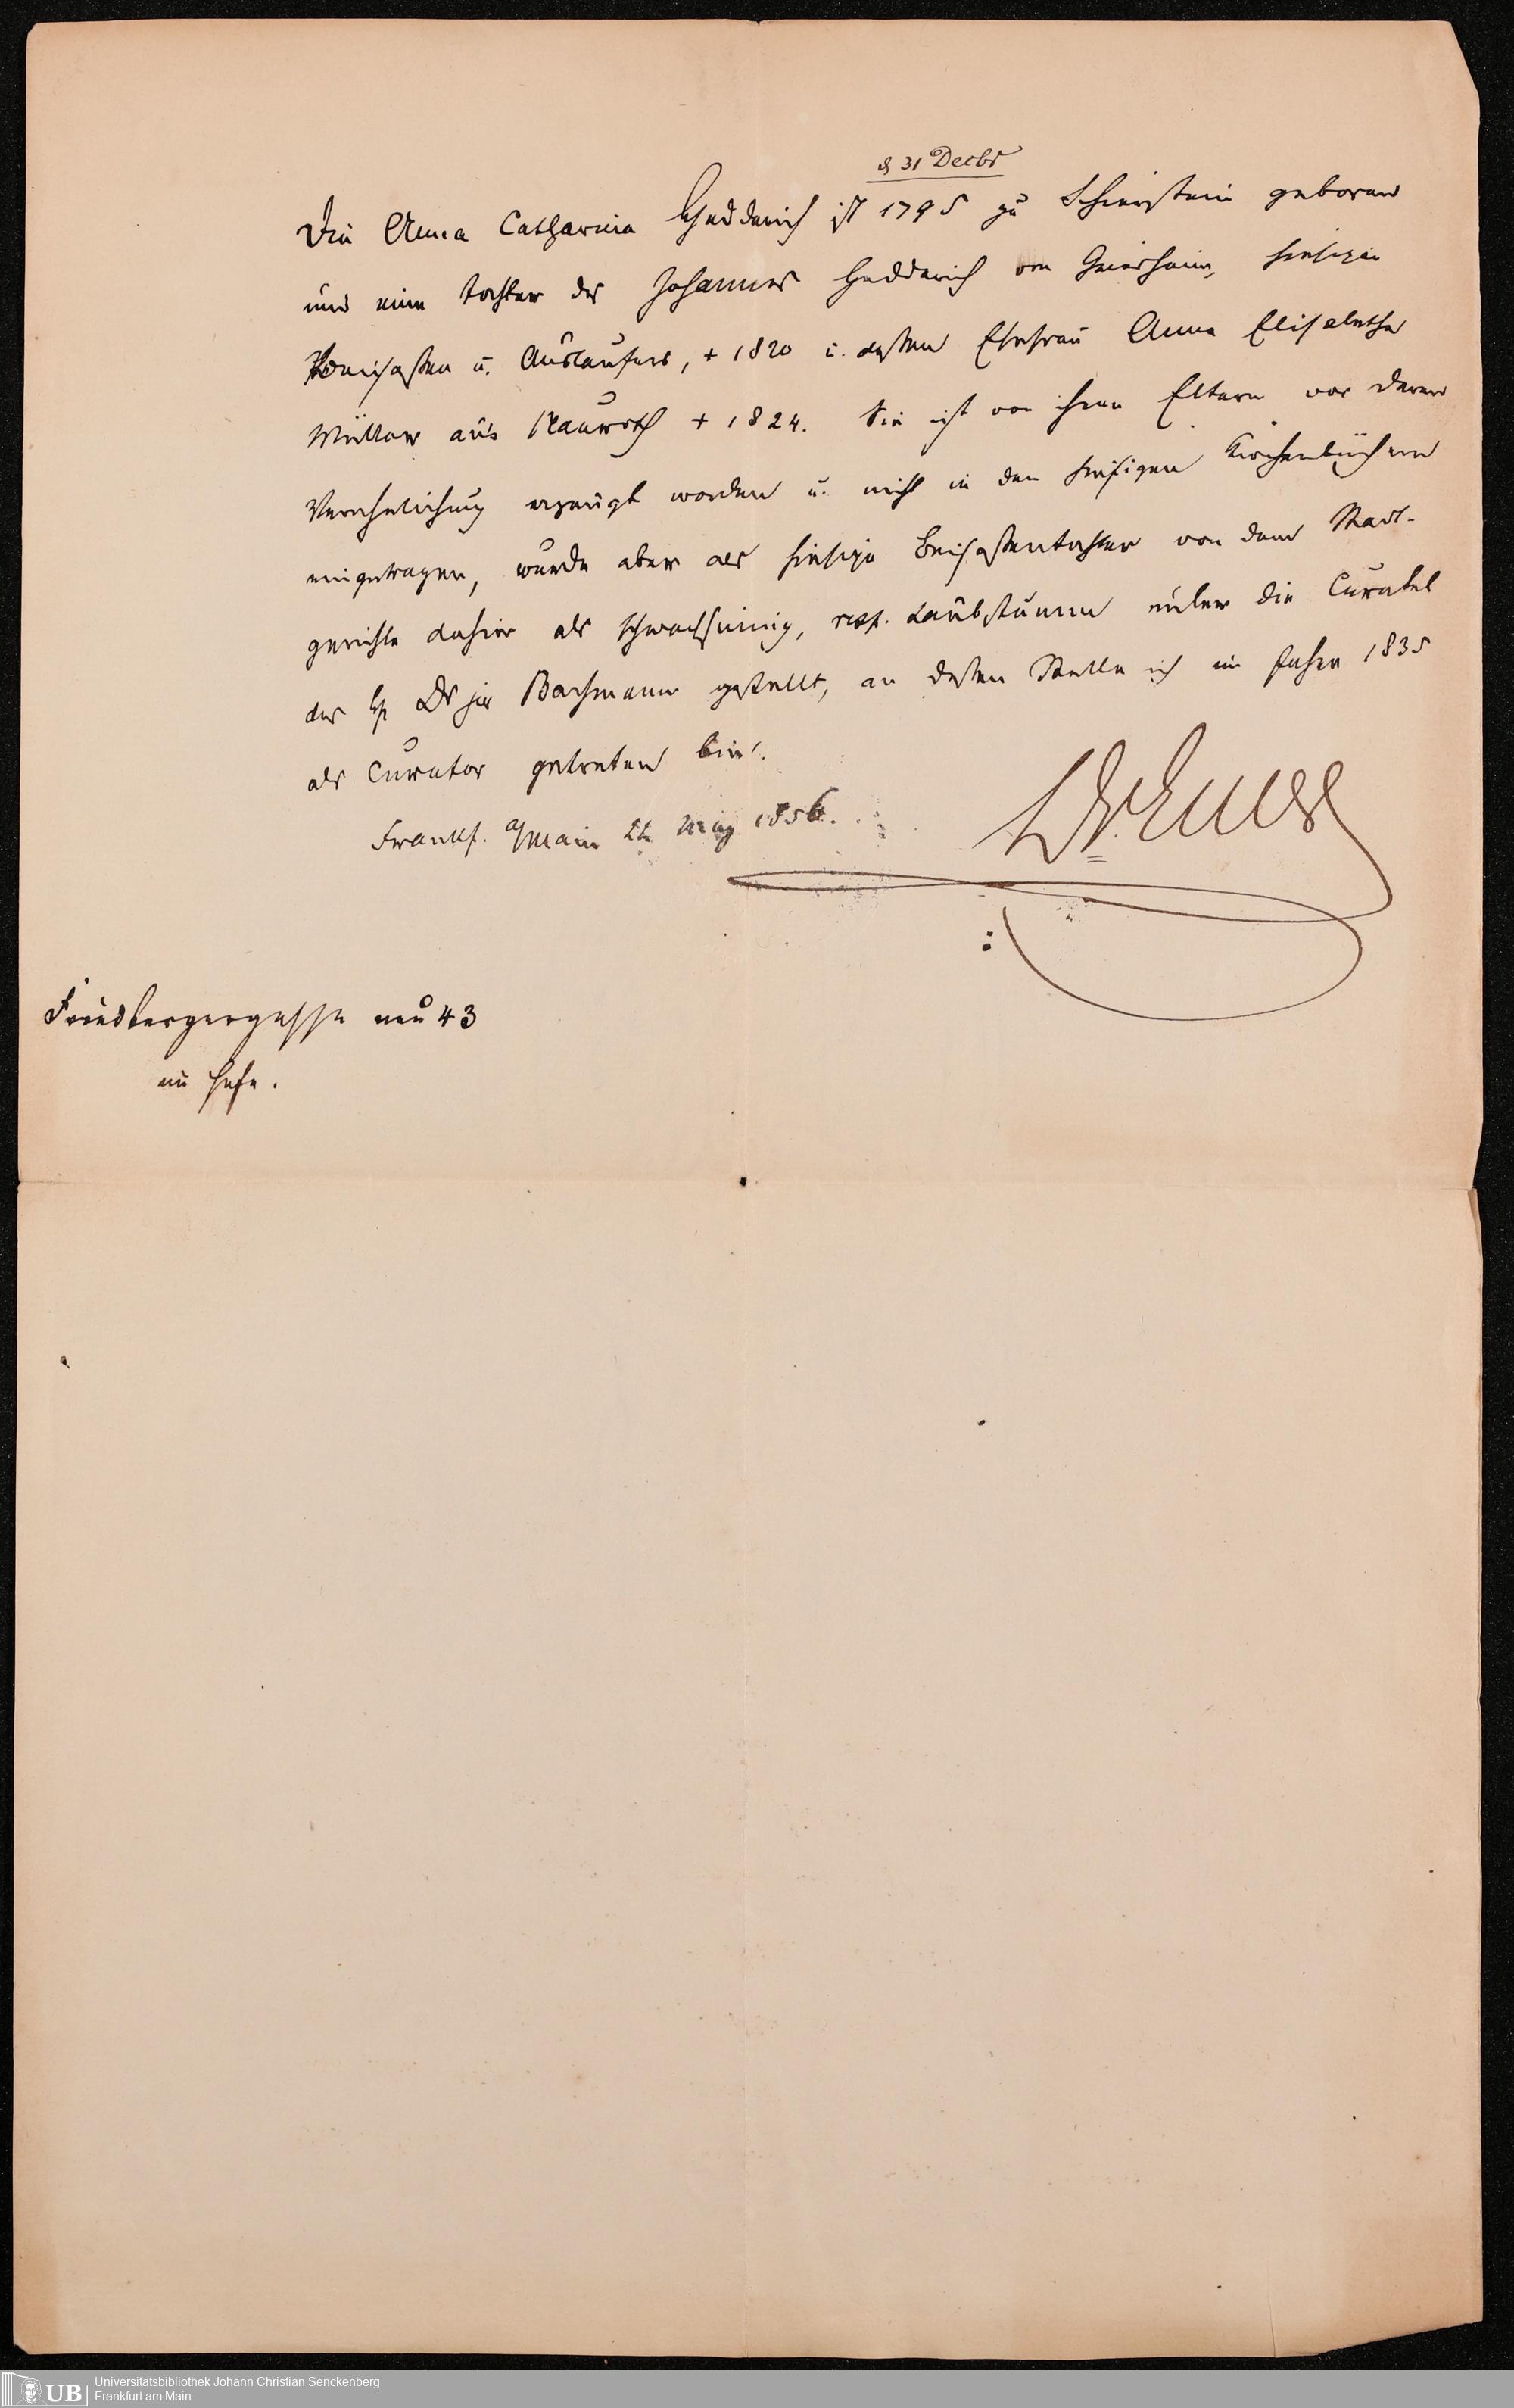 d 31 Decbr
Die Anna Catharina Hedderich ist 1795 zu Schierstein geboren
und eine Tochter des Johannes Hedderich von Griesheim, hiesigen
Beisaßen u. Ausläufers, + 1820 u. deßen Ehefrau Anna Elisabetha
Müller aus Nauroth + 1824. Sie ist von ihren Eltern vor deren
Verehelichung erzeugt worden u. nicht in den hiesigen Kirchenbüchern
eingetragen, wurde aber als hiesige Beisaßentochter von dem Stadt-
gerichte dahier als schwachsinnig, resp. taubstumm unter die Curatel
des H Dr jur Bachmann gestellt, an deßen Stelle ich im Jahre 1835
als Curator getreten bin.
Frankf. a/Main 22 May 1856.
Dr.
Friedbergergasse neu 43
im Hofe.
UB Universitätsbibliothek Johann Christian Senckenberg
Frankfurt am Main